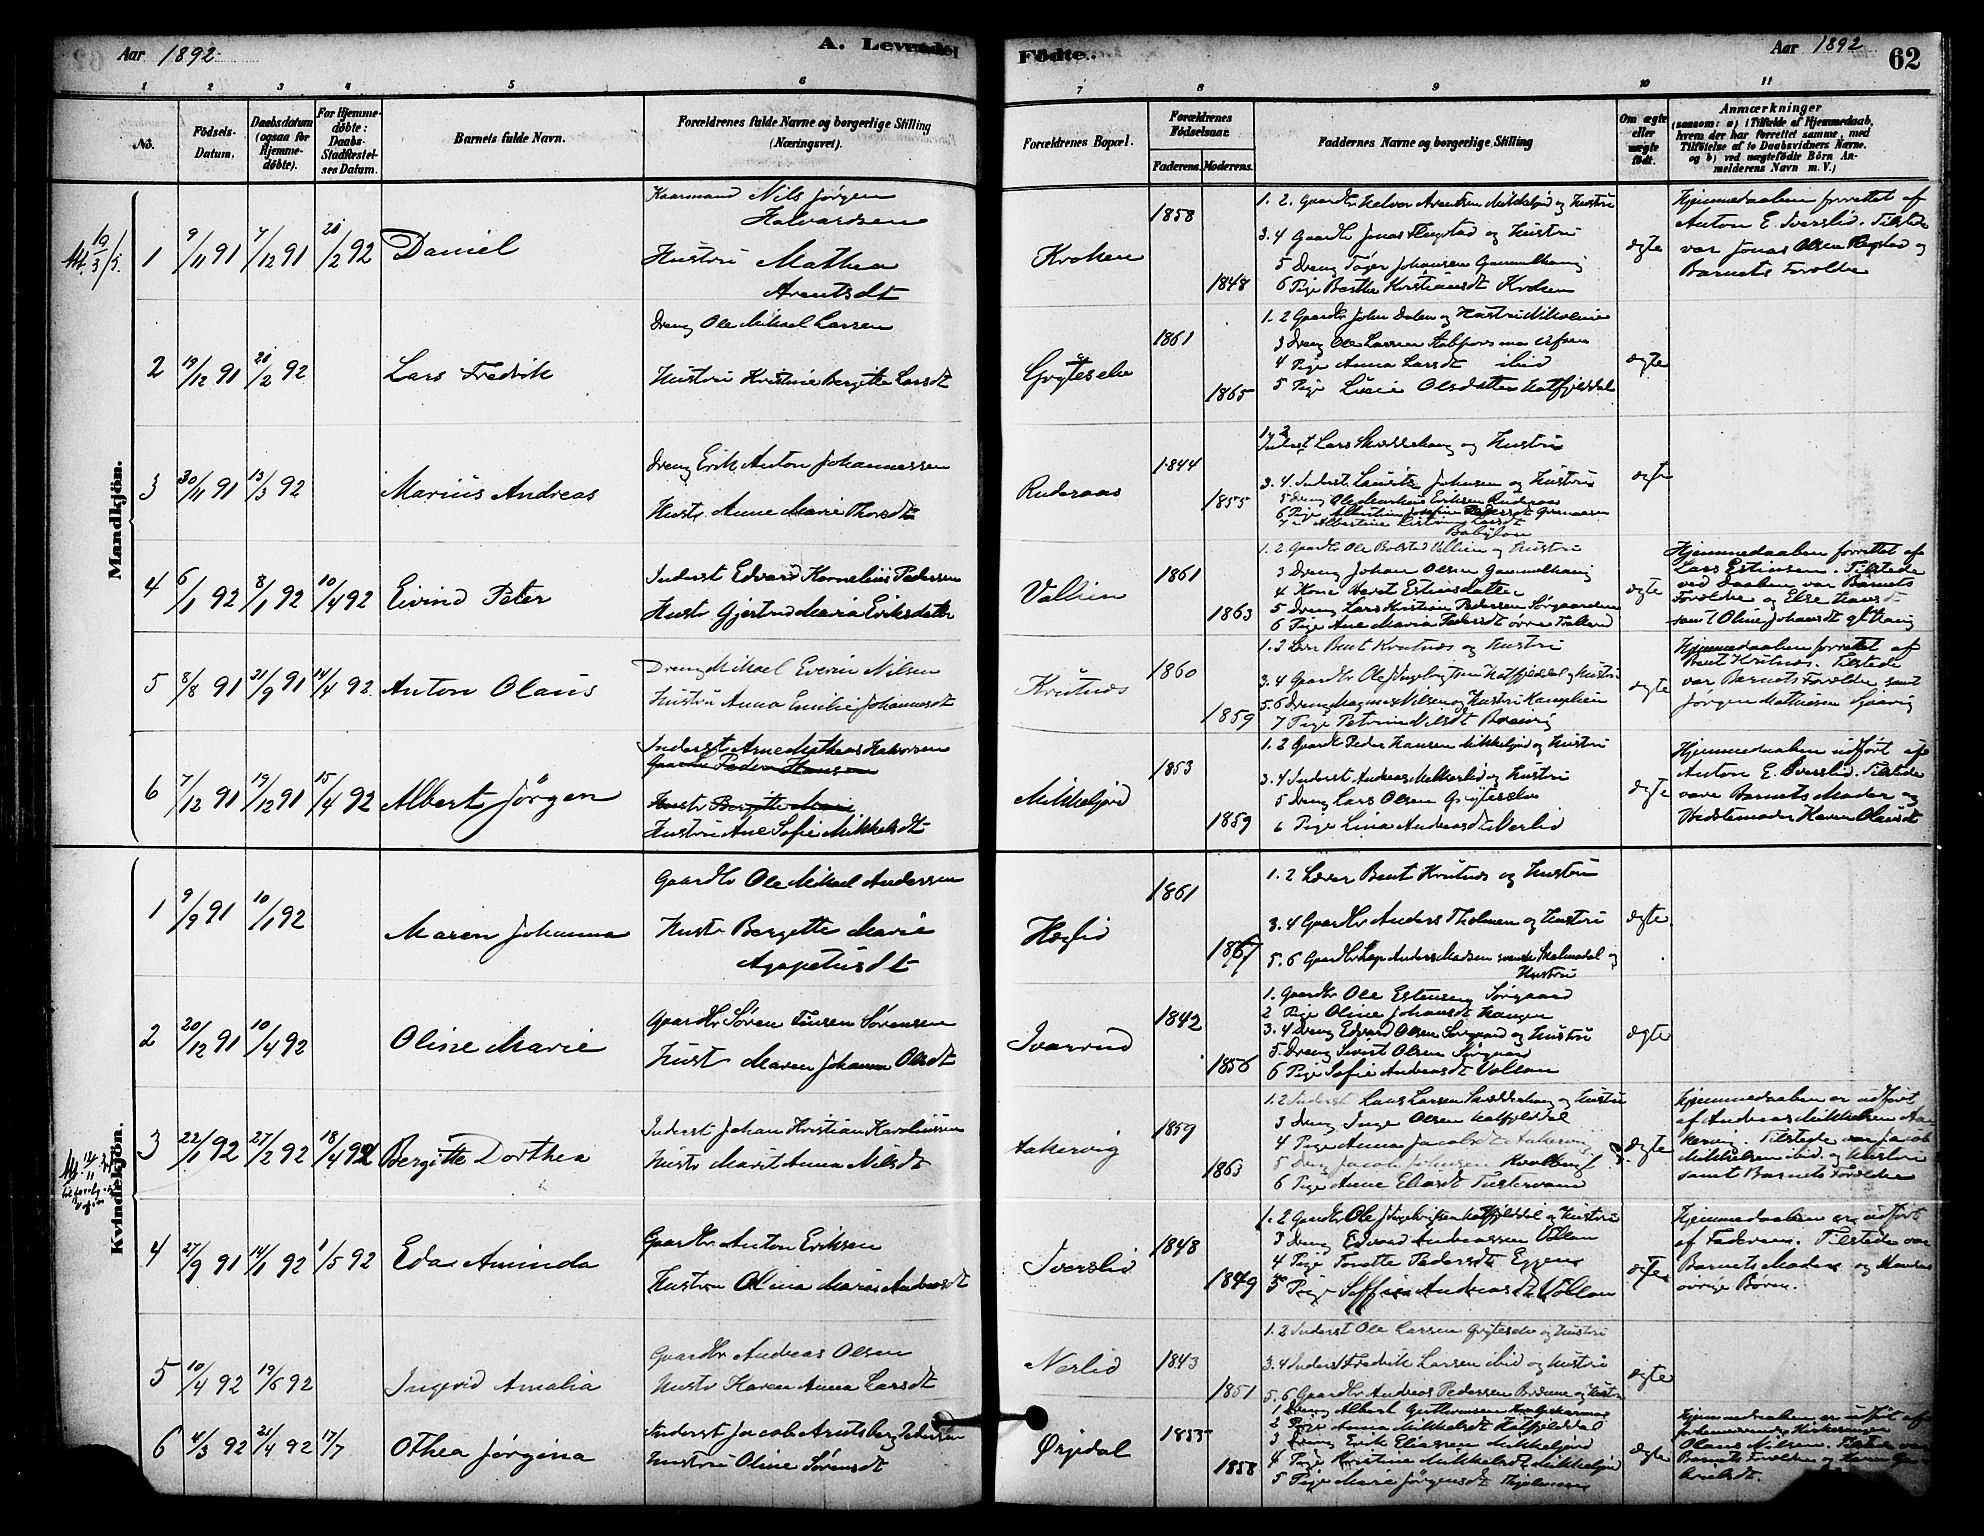 Aar 1892
A. Levende
Fødte.
Aar 1892
62
1 2 3 4 5 6 7 8 9 10 11
No.
Fødsels-
Datum.
Daabsdatum
(ogsaa for
Hjemme-
døbte).
For Hjemme-
døbte:
Daabs-
Stadfæstel-
ses Datum.
Barnets fulde Navn.
Forældrenes fulde Navne og borgerlige Stilling
(Næringsvei).
Forældrenes Bopæl.
Forældrenes
Fødselsaar.
Faderens. Moderens.
Faddernes Navne og borgerlige Stilling
Om ægte
eller
uægte
født.
Anmærkninger
(saasom: a) i Tilfælde af Hjemmedaab,
hvem der har forrettet samme, med
Tilføielse af to Daabsvidners Navne,
og b) ved uægtefødte Børn An-
melderens Navn m. V.)
Mandkjön.
1 9/11 91 7/12 91 28/2 92 Daniel
Kaarmand Nils Jørgen
Halvardsen
Hustru Mathea
Arentsdt
Kroken
1858
1848
1. 2. Gaardbr Halvor Arentsen Mikkeljord og Hustru
3. 4 Gaardbr Jonas Flegstad og Hustru
5 Dreng Tøger Johansen Gammelhaug
6 Pige Berthe Kristiansdt Kroken
ægte
Hjemmedaaben forrettet af
Anton E. Iverslid. Tilstede
var Jonas Olsen Flegstad og
Barnets Forældre
2 19/12 91 28/2 92 Lars Fredrik
Dreng Ole Mikael Larsen
Hustru Kristine Bergitte Larsdt
Gryteselv
1861
1865
1. 2 Gaardbr John Dalen og Hustru
3 Dreng Ole Larsen
4 Pige Anna Larsdt ibid
5 Pige Lucie Olsdatter Hatfjelddal
ægte
3 30/11 91 13/3 92 Marius Andreas
Dreng Erik Anton Johannessen
Hustr. Anne Marie Thorsdt
Ruderaas
1844
1855
1. 2
Inderst Lars Skæddehaug og Hustru
3. 4. Inderst Laurits Johnsen og Hustru
5 Dreng Ole Markus Eriksen Ruderaas
6 Pige Albertine Josefine Pedersdt
7 " Albertine Larsdt
ægte
4 6/1 92 8/1 92 10/4 92 Eivind Peter
Inderst Edvard Kornelius Pedersen
Hustr Gjertrud Maria Eriksdatter
Vollien
1861
1863
1. 2. Gaardbr Ole Vollien og Hustru
3 Dreng Johan Olsen Gammelhaug
4 Kone Beret Estensdatter
5 Dreng Lars Kristian Pedersen Sørgaarden
6 Pige Ane Maria Pedersdt
ægte
Hjemmedaaben forrettet af
Lars Estensen. Tilstede
ved Daaben var Barnets
Forældre og Else Hansdt
samt Oline Johansdt
5 8/8 91 21/9 91 14/4 92 Anton Olaus
Dreng Mikael Everin Nilsen
Hustru Anna Emilie Johannesdt
Krutnæs
1860
1859
1. 2 Lærer Bent Krutnæs og Hustru
3. 4 Gaardbr Ole Ingebrigtsen Hatfjelddal og Hustru
5. 6 Dreng Magnus Nilsen og Hustru
7 Pige Petrine Nilsdt
ægte
Hjemmedaaben forrettet af
Bent Krutnæs. Tilstede
var Barnets Forældre samt
Jørgen Mathisen
6 7/12 91 19/12 91 15/4 92 Albert Jørgen
Inderst Arne Mathias Halvorsen
Gaardbr Peder Hansen
Hustr Bergitte Marie
Hustru Ane Sofie Mikkelsdt
Mikkeljord
1853
1859
1. 2 Gaardbr Peder Hansen Mikkeljord og Hustru
3. 4 Inderst Andreas og Hustru
5 Dreng Lars Olsen Gryteselv
6 Pige Lina Andreasdt Nerlid
ægte
Hjemmedaaben udført af
Anton E. Iverslid. Tilstede
vare Barnets Moder og
Bedstemoder Karen Olausdt
Kvindekjön.
1 9/9 91 10/1 92 Maren Johanna
Gaardbr Ole Mikael Andersen
Hustr Bergitte Marie
Agapetusdt
1861
1867
1. 2 Lærer Bent Krutnæs og Hustru
3. 4 Gaardbr Anders Tholmen og Hustru
5. 6 Gaardbr Lap Anders Madsen svensk Skalmodal og
Hustru
ægte
2 20/12 91 10/4 92 Oline Marie
Gaardbr Søren Finsen Sørensen
Hust Maren Johanna Olsdt
Ivarrud
1842
1856
1. Gaardbr Ole Estensen Sørgaard
2 Pige Oline Johansdt Haugen
3. 4 Dreng Edvard Olsen Sørgaard og Hustru
5. Dreng Sivert Olsen Sørgaard
6 Pige Sofie Andreasdt Vollan
ægte
3 22/1 92 27/2 92 18/4 92 Bergitte Dorthea
Inderst Johan Kristian Karoliussen
Hustr Marit Anna Nilsdt
Aakervig
1859
1863
1. 2 Inderst Lars Larsen Skæddehaug og Hustru
3 Dreng Inge Olsen Hatfjelddal
4 Pige Anna Jacobsdt Aakervig
5 Dreng Jacob Johnsen
6 Pige Anne Eliasdt Tustervand
ægte
Hjemmedaaben er udført
af Andreas Mikkelsen Aa-
kervig. Tilstede var Jacob
Mikkelsen ibid. og Hustru
samt Barnets Forældre
4 27/9 91 14/1 92 1/5 92 Eda Aminda
Gaardbr Anton Eriksen
Hustru Olina Maria Andreasdt
Iverslid
1848
1849
1. 2 Gaardbr Ole Ingebrigtsen Hatfjelddal og Hustru
3 Dreng Edvard Andreassen Vollan
4 Pige Tonette Pedersdt Eggen
5 Pige Sofie Andreasdt Vollan
ægte
Hjemmedaaben er udført
af Faderen. Tilstede var
Barnets Moder og Hendes
øvrige Børn.
5 10/4 92 19/6 92 Ingerid Amalia
Gaardbr Andreas Olsen
Hustr Karen Anna Larsdt
Nerlid
1843
1851
1. 2 Inderst Ole Larsen Gryteselv og Hustru
3. 4 Inderst Fredrik Larsen ibid og Hustru
5. 6 Gaardbr Andreas Pedersen og Hustru
ægte
6 4/3 92 21/4 92 17/7 Othea Jørgina
Inderst Jacob Arntsberg Pedersen
Hustru Oline Sørensdt
Ørjedal
1855
1858
1 Dreng Albert Guttormsen
2 Pige Anna Mikkelsdt Hatfjelddal
3 Dreng Erik Eliassen Mikkeljord
4 Pige Kristine Mikkelsdt Mikkeljord
5 Pige Marie Jørgensdt
ægte
Hjemmedaaben er udført af
Kirkesanger
Olaus Nilsen. Tilstede var
Barnets Forældre og Karen